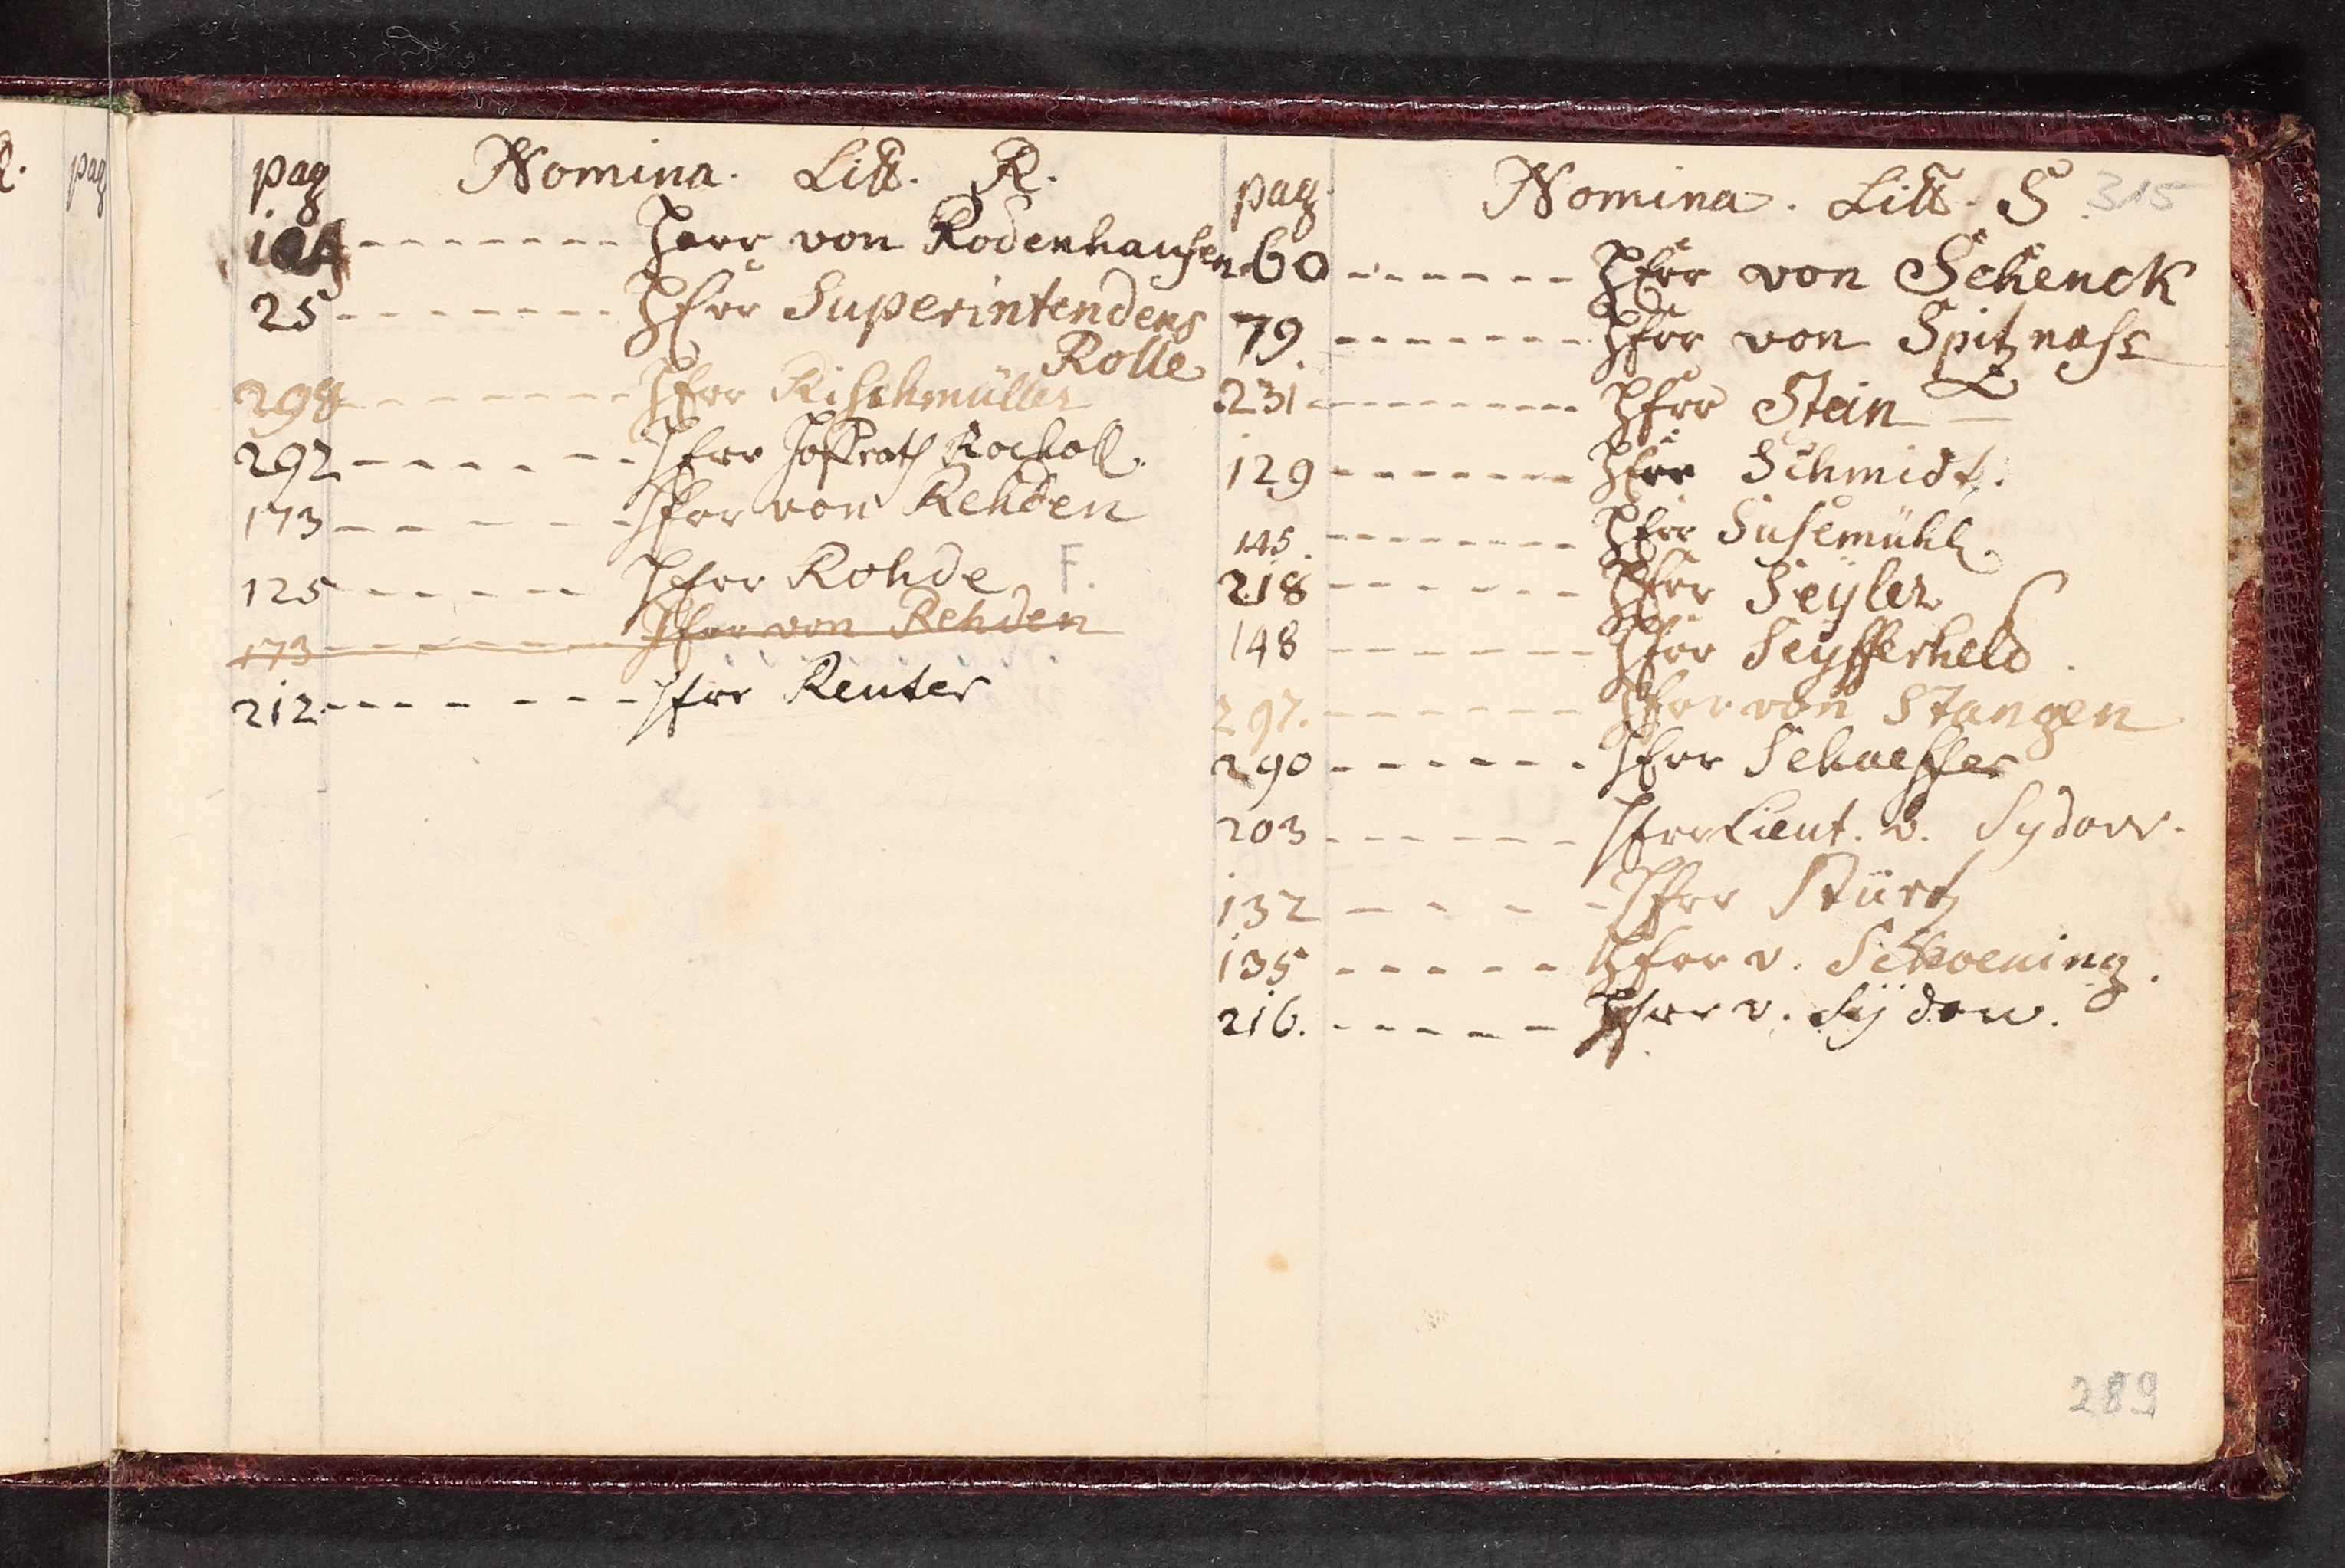 R. pag
pag Nomina. Litt. R.
Herr von Rodenhausen
25 -------- Herr Superintendens
Rolle
298 -------- Herr Rischmüller
292 ------ Herr Hoffrath Rocholl.
173 ------ Herr von Rehden
125 ------ Herr Rohde F.
173 -------- Herr von Rehden
212 ------- Herr Reuter
pag. Nomina. Litt. S. 315
60 ------- Herr von Schenck
79. -------- Herr von Spitznass
231 --------- Herr Stein
129 ------- Herr Schmidt.
145. -------- Herr Susemühl.
218 ------- Herr Seÿler
148 ------- Herr Seyfferheld.
297. ------- Herr von Stangen
290 ------- Herr Schaeffer
203 ------ Herr Lieut. v. Sydow.
132 ----- Herr Stürtz
135 ----- Herr v. Schoening.
216. ------ Herr v. Sÿdow.
289